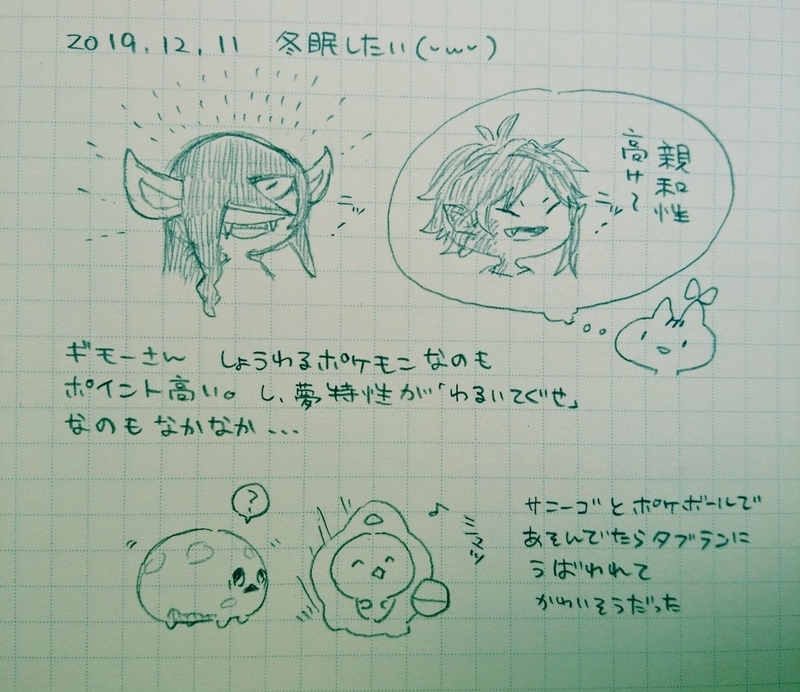 2019.12.11 冬眠したい(˘ω˘)
ニッ
親和性
高け〜
ニッ
ギモーさん しょうわるポケモンなのも
ポイント高い。し、夢特性が「わるいてぐせ」
なのもなかなか...
?
♪
ミマッ
サニーゴとポケボールで
あそんでたらタブランに
うばわれて
かわいそうだった